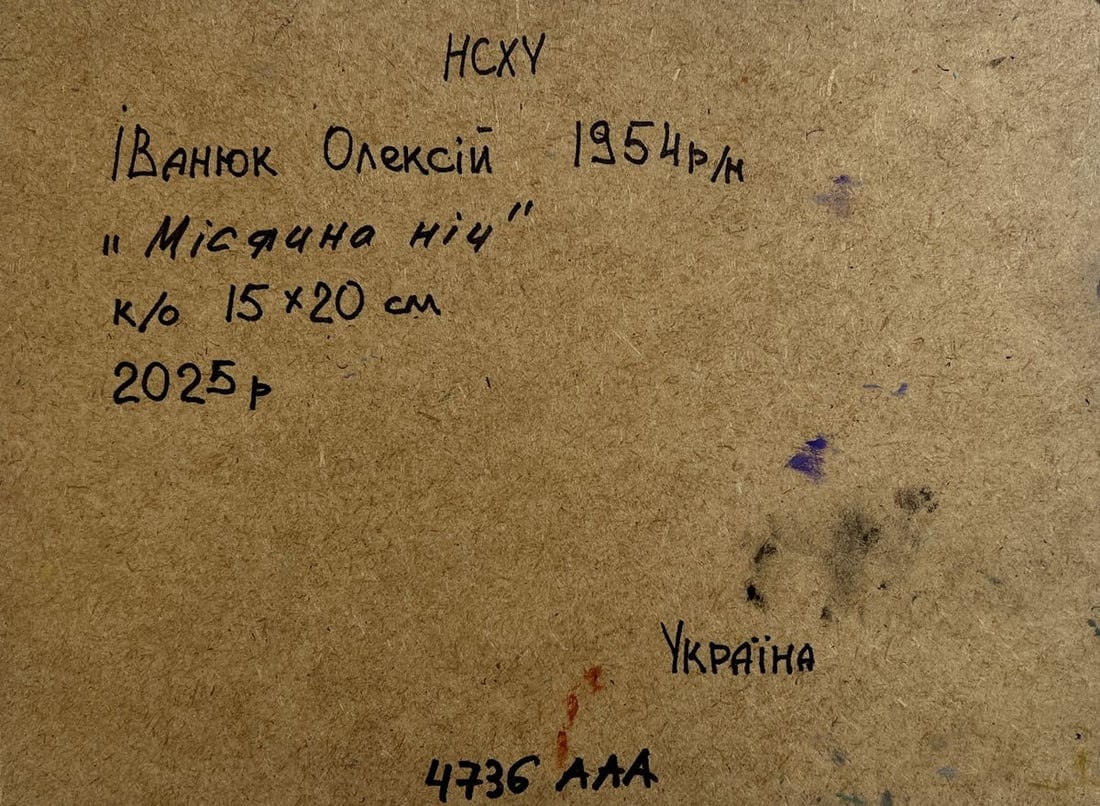 НСХУ
Іванюк Олексій 1954р/н
"Місячна ніч"
к/о 15×20 см
2025р
Україна
4736 ААА